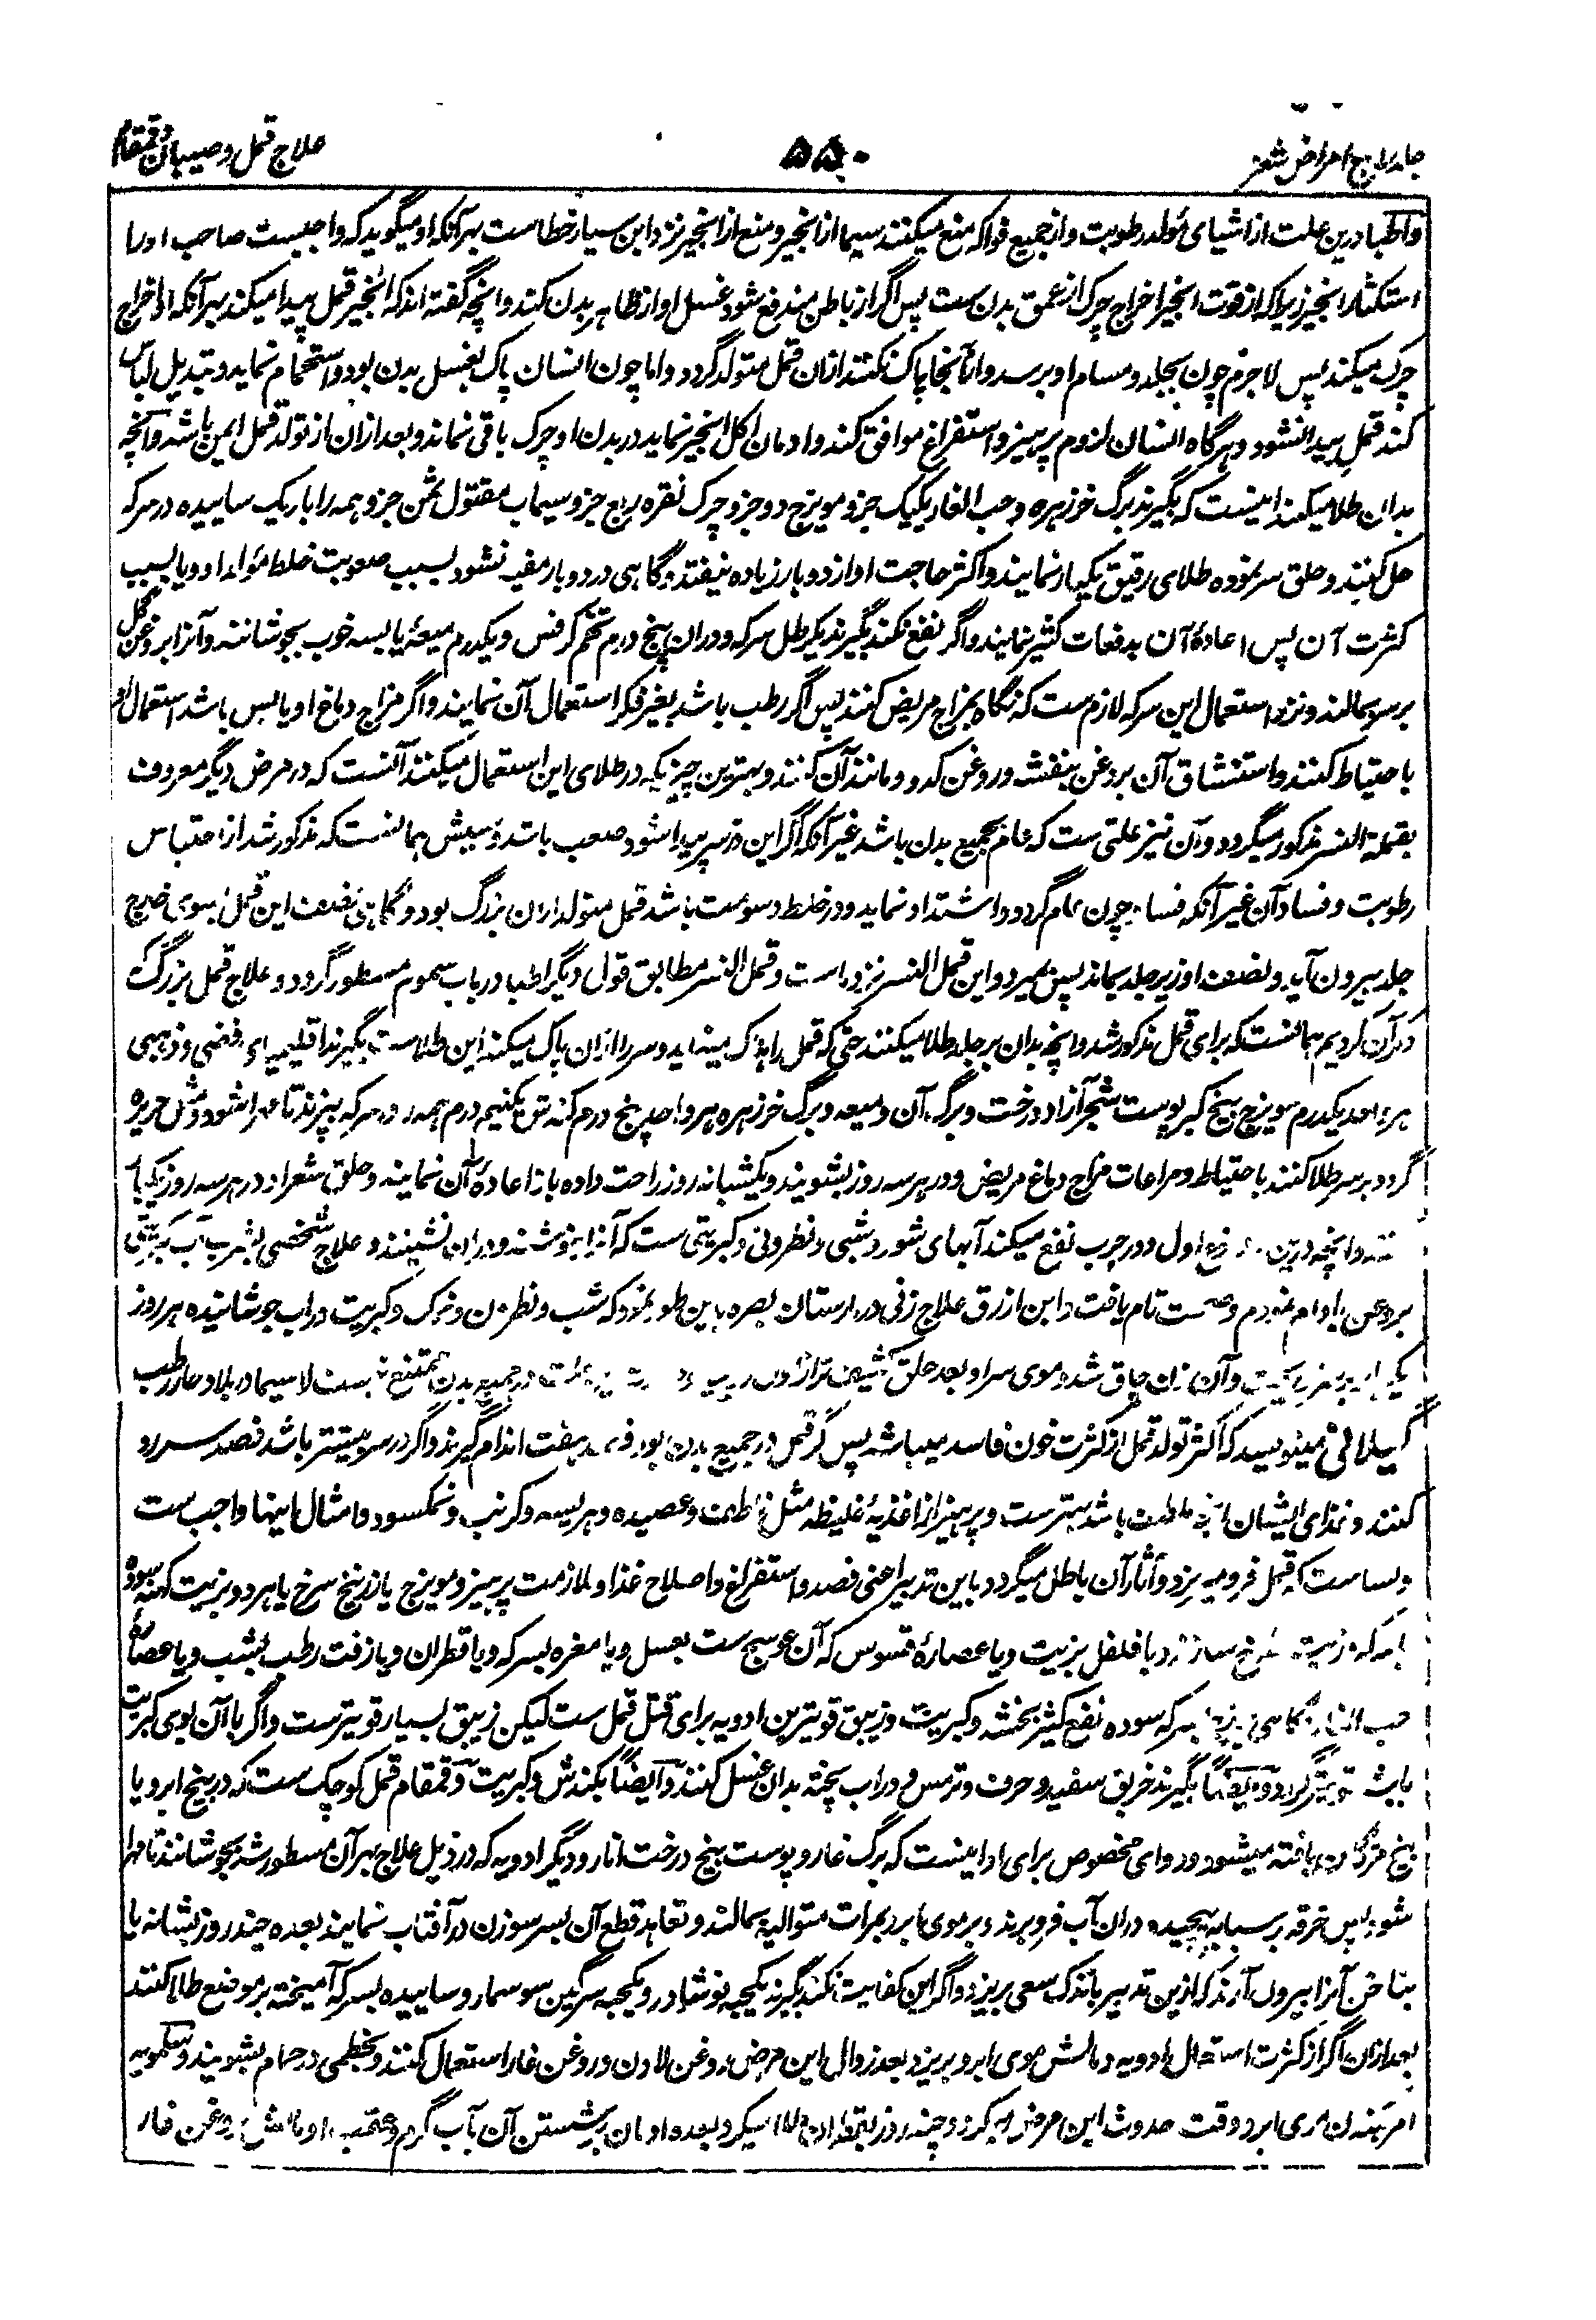 جلد رابع امراض شعر
۵۵۰
علاج قمل و صیبان و قمقام
واطبا درین علت از اشیای مولد رطوبت و از جمیع فواکه منع میکنند سیما از انجیر و منع از انجیر نزد ابن سیار خطاست بهر آنکه او میگوید که واجبست صاحب اورا
استکثار انجیر زیرا که از قوت انجیر اخراج چرک از عمق بدن ست پس اگر از باطن مندفع شود غسل او از ظاهر بدن کنند و آنچه گفته اند که انجیر قمل پیدا میکند بهر آنکه او اخراج
چرک میکند پس لا جرم چون بجلد و مسام او برسد و از آنجا پاک نکنند ازان قمل متولد گردد و اما چون انسان پاک بغسل بدن بود و استحمام نماید و تبدیل لباس
کند قمل پیدا نشود و هرگاه انسان لزوم پرهیز و استفراغ موافق کند و ادمان اکل انجیر نماید در بدن او چرک باقی نماند و بعد ازان از تولد قمل ایمن باشد و آنچه
بدان طلا میکنند اینست که بگیرند برگ خرزهره و حب الغار یکیک جزو مویزج دو جزو چرک نقره ربع جزو سیماب مقتول ثمن جزو همه را باریک ساییده در سرکه
حل کنند و حلق سر نموده طلای رقیق یکبار نمایند و اکثر حاجت او از دو بار زیاده نیفتد و گاهی در دو بار مفید نشود بسبب صعوبت خلط مولد او و یا بسبب
کثرت آن پس اعاده آن بدفعات کثیر نمایند و اگر نفع نکند بگیرند یکرطل سرکه و دران پنج درم تخم کرفس و یکدرم میعه یابسه خوب بجوشانند و آنرا بروغن گل
بر سر بمالند و نزد استعمال این سرکه لازم ست که نگاه بمزاج مریض کنند پس اگر رطب باشد بغیر فکر استعمال آن نمایند و اگر مزاج دماغ او یابس باشد استعمال او
باحتیاط کنند و استنشاق آن بروغن بنفشه و روغن کدو و مانند آن کنند و بهترین چیزیکه در طلای این استعمال میکنند آنست که در مرض دیگر معروف
بقملة النسر مذکور میگردد و آن نیز علتی ست که عام بجمیع بدن باشد غیر آنکه اگر این در سر پیدا شود صعب باشد و سببش همانست که مذکور شد از احتباس
رطوبت و فساد آن غیر آنکه فساد چون عام گردد و اشتداد نماید و در خلط دسومت باشد قمل متولد ازان بزرگ بود و گاهی نصف این قمل بسوی خارج
جلد بیرون آید و نصف او زیر جلد بماند پس بمیرد و این قمل النسر نزد او است و قمل النسر مطابق قول دیگر اطبا در باب سموم مسطور گردد و علاج قمل بزرگ که
ذکر آن کردیم همانست که برای قمل مذکور شد و آنچه بدان بر جلد طلا میکنند حتی که قمل را هلاک مینماید و سر را ازان پاک میکند این طلاست بگیرند اقلیمیای فضی و ذهبی
هر واحد یکدرم مویزج بیخ کبر پوست شجر آزاد درخت و برگ آن و میعه و برگ خرزهره هر واحد پنج درم کندش یکنیم درم همه را در سرکه بپزند تا مهرا شود و مثل حریره
گردد بر سر طلا کنند باحتیاط و مراعات مزاج دماغ مریض و در هر سه روز بشویند و یکشبانه روز راحت داده باز اعاده آن نمایند و حلق شعر او در هر سه روز یکبار
اول و در جرب نفع میکند آبهای شور و شبی و نطرونی و کبریتی ست که آنرا بنوشند و دران نشینند و علاج شخصی بشرب آب کبریتی
بروغن بادام نمودم و صحت تام یافت و ابن ازرق علاج زنی در مارستان بصره باین طور نمود که شب و نطرون و نمک و کبریت در آب جوشانیده هر روز
و آن زن چاق شد و موی سر او بعد حلق کثیف تر از اول در جمیع بدن ممتنع نیست لاسیما در بلاد حار رطب
گیلانی مینویسد که اکثر تولد قمل از کثرت خون فاسد میباشد پس اگر قمل در جمیع بدن بود فصد هفت اندام گیرند و اگر در سر بیشتر باشد فصد سررو
کنند و غذای ایشان آنچه ملطف باشد بهترست و پرهیز از اغذیه غلیظه مثل و عصیده و هریسه و کرنب و نمکسود و امثال اینها واجب ست
و بساست که قمل فرو میریزد و آثار آن باطل میگردد باین تدبیر اعنی فصد و استفراغ و اصلاح غذا و ملازمت پرهیز و مویزج یا زرنیخ سرخ یا هر دو بزیت کهنه سوده
با سرکه و زیت سازند و یا فلفل بزیت و یا عصاره قسوس که آن عوسج ست بعسل و یا مغره بسرکه و یا قطران و یا زفت رطب بشب و یا عصاره
حب الغار گاهی بسرکه سوده نفع کثیر بخشد و کبریت و زیبق قویترین ادویه برای قتل قمل ست لیکن زیبق بسیار قویترست و اگر با آن بوی کبریت
باشد قویتر گردد و ایضاً بگیرند خربق سفید و حرف و ترمس و در آب پخته بدان غسل کنند و ایضاً بکندش و کبریت و قمقام قمل کوچک ست که در بیخ ابرو یا
بیخ مژگان یافته میشود و دوای مخصوص برای او اینست که برگ غار و پوست بیخ درخت انار و دیگر ادویه که در ذیل علاج بهر آن مسطور شد بجوشانند تا مهرا
شود پس خرقه بر سبابه پیچیده دران آب فرو برند و بر موی ابرو بمرات متوالیه بمالند و تعاهد قطع آن بسر سوزن در آفتاب نمایند بعده چند روز بشانه یا
بناخن آنرا بیرون آرند که ازین تدبیر باندک سعی بریزد و اگر این کفایت نکند بگیرند یکحبه نوشادر و یکحبه سرگین سوسمار و ساییده بسرکه آمیخته بر موضع طلا کنند
بعد ازان اگر از کثرت استعمال ادویه و مالش موی ابرو بریزد بعد زوال این مرض روغن لادن و روغن غار استعمال کنند و بخطمی در حمام بشویند و سکمویه
امر بتراشیدن موی ابرو وقت حدوث این مرض میکرد و چند روز بقطران طلا میکرد بعده ادمان بر شستن آن بآب گرم و عقب او مالش روغن غار